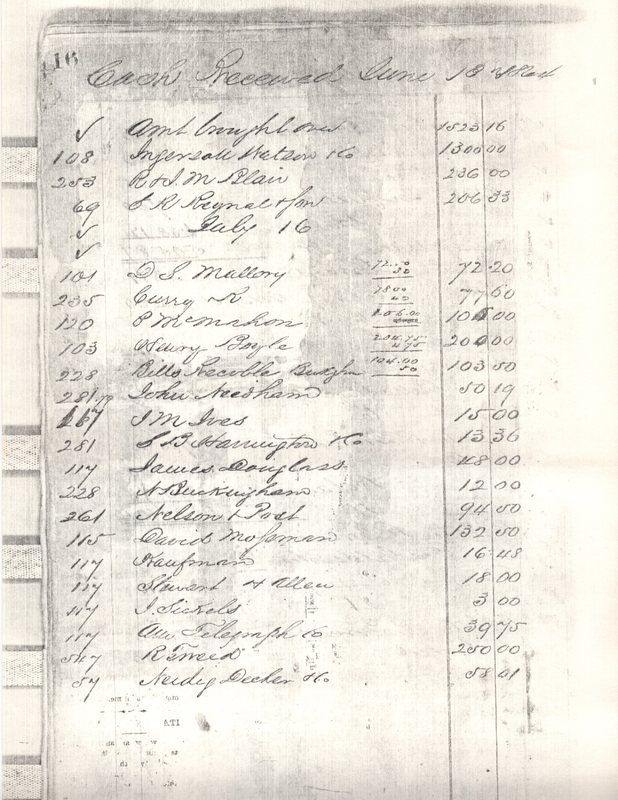 116
Cash Received June 18
✓ Amt brought over 1523 16
108 Ingersoll Watson & Co 1300 00
253 R & J. M Blair 236 00
69 J R Reynal & Son 206 33
✓ July 16
✓
101 D. S. Mallory 72.50 30 72 20
235 Curry K 78 00 40 77 60
120 P McMahon 106.00 00
103 Henry Boyle 204.75 4 75 200 00
228 Bills Receible 104.00 50 103 50
281 John Needham 50 19
117 J M Ives 15 00
281 S B Harrington & Co 13 36
117 James Douglass 48 00
228 N Buckingham 12 00
261 Nelson & Post 94 50
115 David Mossman 132 50
117 Kaufman 16 48
117 Stewart & Allen 18 00
117 J. Sickels 3 00
117 Am Telegraph Co 39 75
547 R Tweed 250 00
57 Neidig Decker & Co 58 01